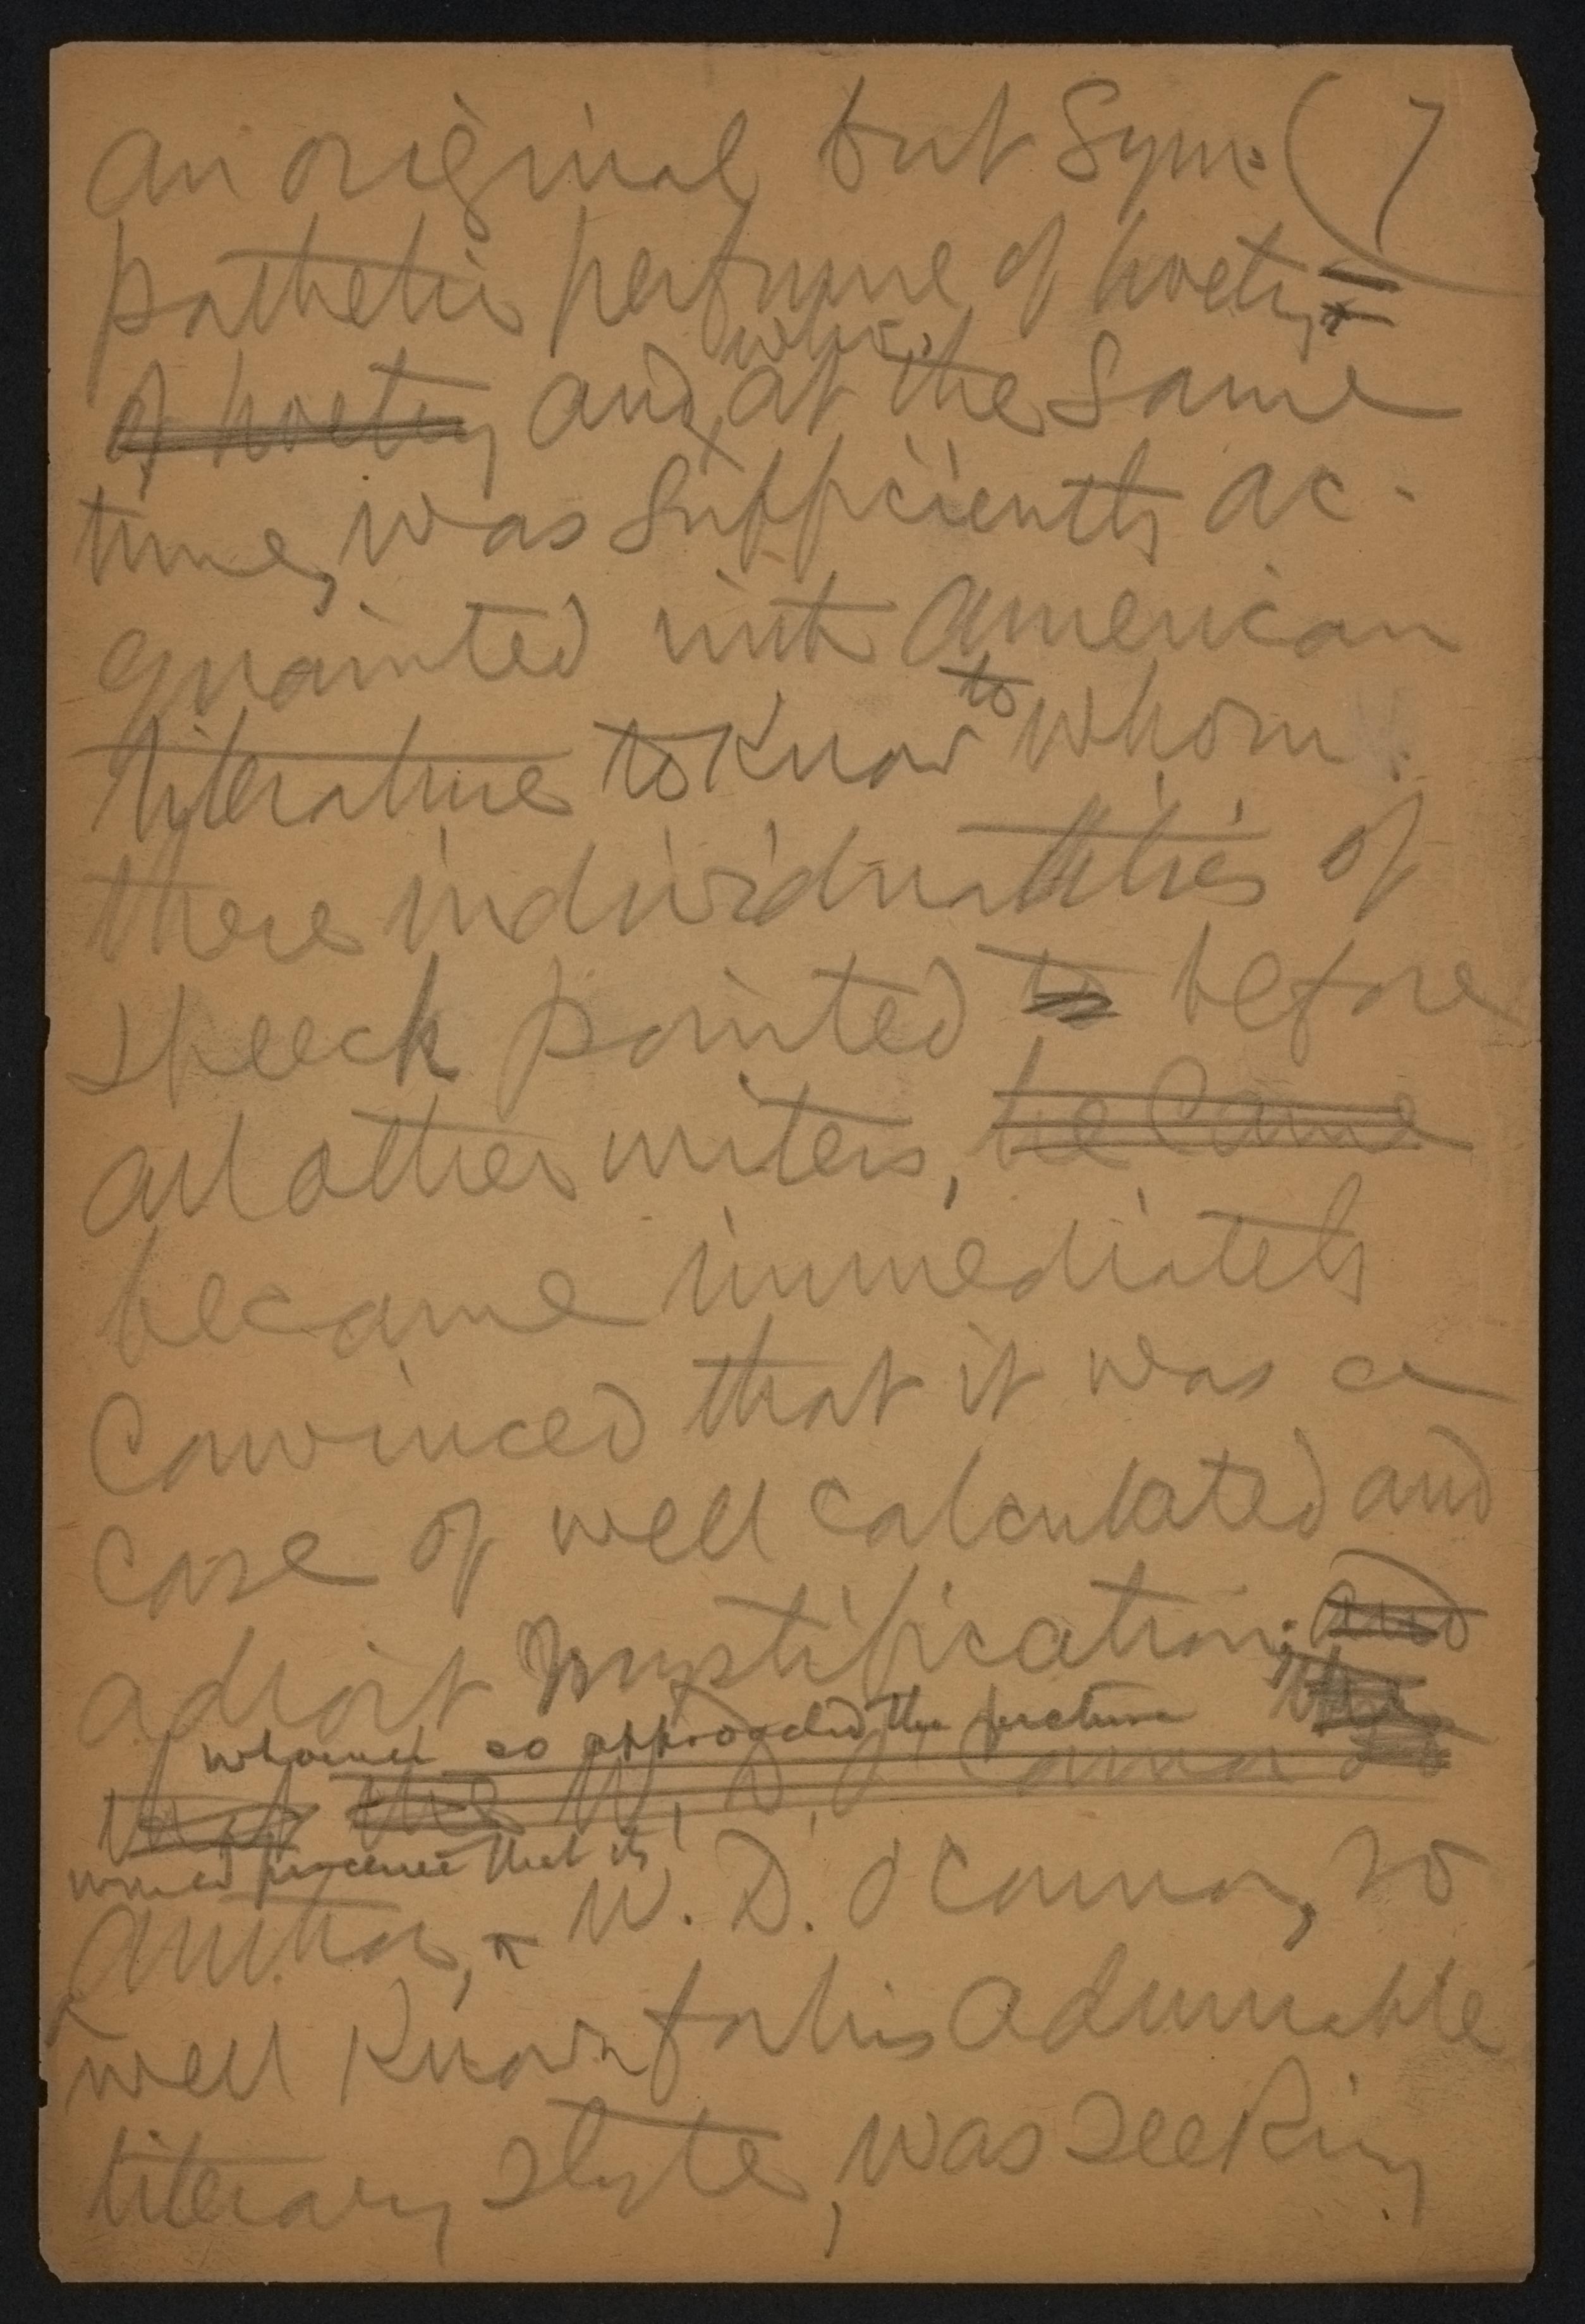 an original, but Sym- (7
pathetic perfume of poetry
of poetry and who, at the Same
time, was Sufficiently ac-
quainted with American
literature to Know to whom
these individualities of
speech pointed to before
all other writers, he Came
became immediately
Convinced that it was a
Case of well calculated and
adroit mystification; and
whoever so approached the picture the
that the W. D. O'Connor so
would perceive that its
author, W. D. O'Connor, so
well Known for his admirable
literary style, was seeking